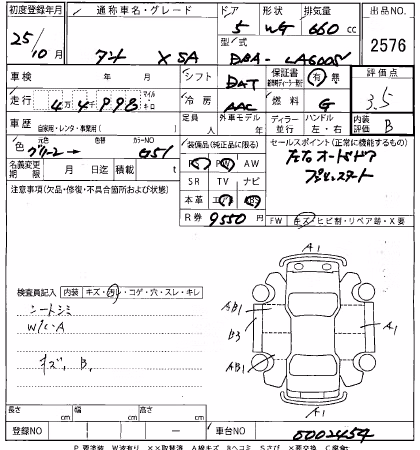 初度登録年月 通称車名・グレード ドア 形状 排気量 出品NO.
25/10 月 タント X SA 5 WG 660 cc 2576
型式 DBA- LA600S
車検 年 月 シフト DAT 保証書 有 無 評価点
走行 4万4千998 マイル キロ 冷房 AAC 燃料 G 3.5
車歴 自家用・レンタ・事業用( ) 定員 人 外車モデル 年 ディーラー 並行 ハンドル 左・右 内装評価 B
色 元色 グリーン → 色替 カラーNO G51
装備品(純正品に限る) セールスポイント(正常に機能するもの)
PS PW AW
名義変更期限 月 日迄 積載 t
SR TV ナビ
プッシュスタート
注意事項(欠品・修復・不具合箇所および状態)
本革 エアB ABS
R券 9550 円
FW キズ・ヒビ割・リペア跡・X要
検査員記入 内装 キズ・汚れ・コゲ・穴・スレ・キレ
シートシミ
W/C-A
キズ、B、
A1
AB1
B3
A1
AB1
A1
長さ cm 幅 cm 高さ cm
登録NO 車台NO 0002454
P要塗装 W波有り XX取替済 A線キズ Bヘコミ Sさび X要交換